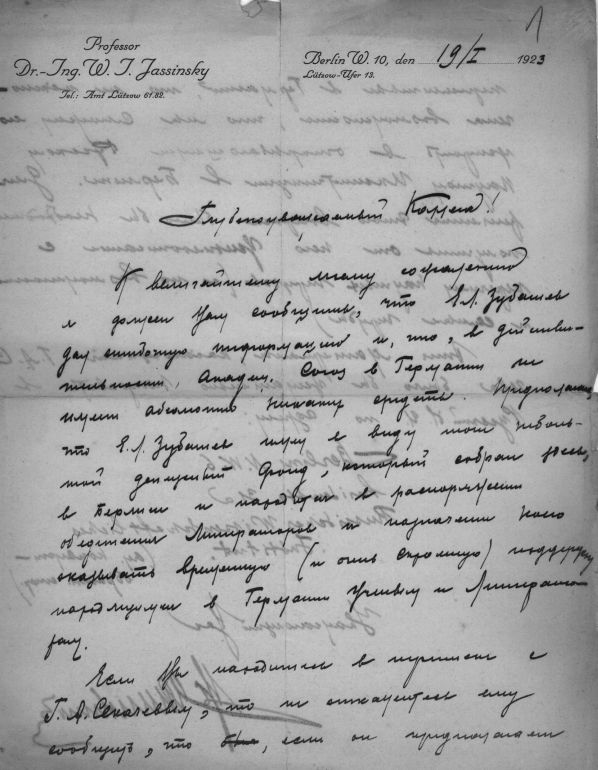 1
Professor
Dr.-Ing. W. I. Jassinsky
Tel.: Amt Lützow 61.82.
Berlin W. 10, den 19/I 1923
Lützow-Ufer 13.
Глубокоуважаемый Коллега!
К величайшему моему сожалению
я должен Вам сообщить, что Е.Л. Зубашев
дал ошибочную информацию и, что, в действи-
тельности, Академ. Союз в Германии не
имеет абсолютно никаких средств. Предполагаю,
что Е.Л. Зубашев имел в виду тот неболь-
шой денежный фонд, который собран здесь,
в Берлине и находится в распоряжении
объединения Литераторов и назначение коего
оказывать временную (и очень скромную) поддержку
находящимся в Германии Ученым и Литерато-
рам.
Если Вы находитесь в переписке с
Г.А. Секачевым, то не откажитесь ему
сообщить, что, если он предполагает